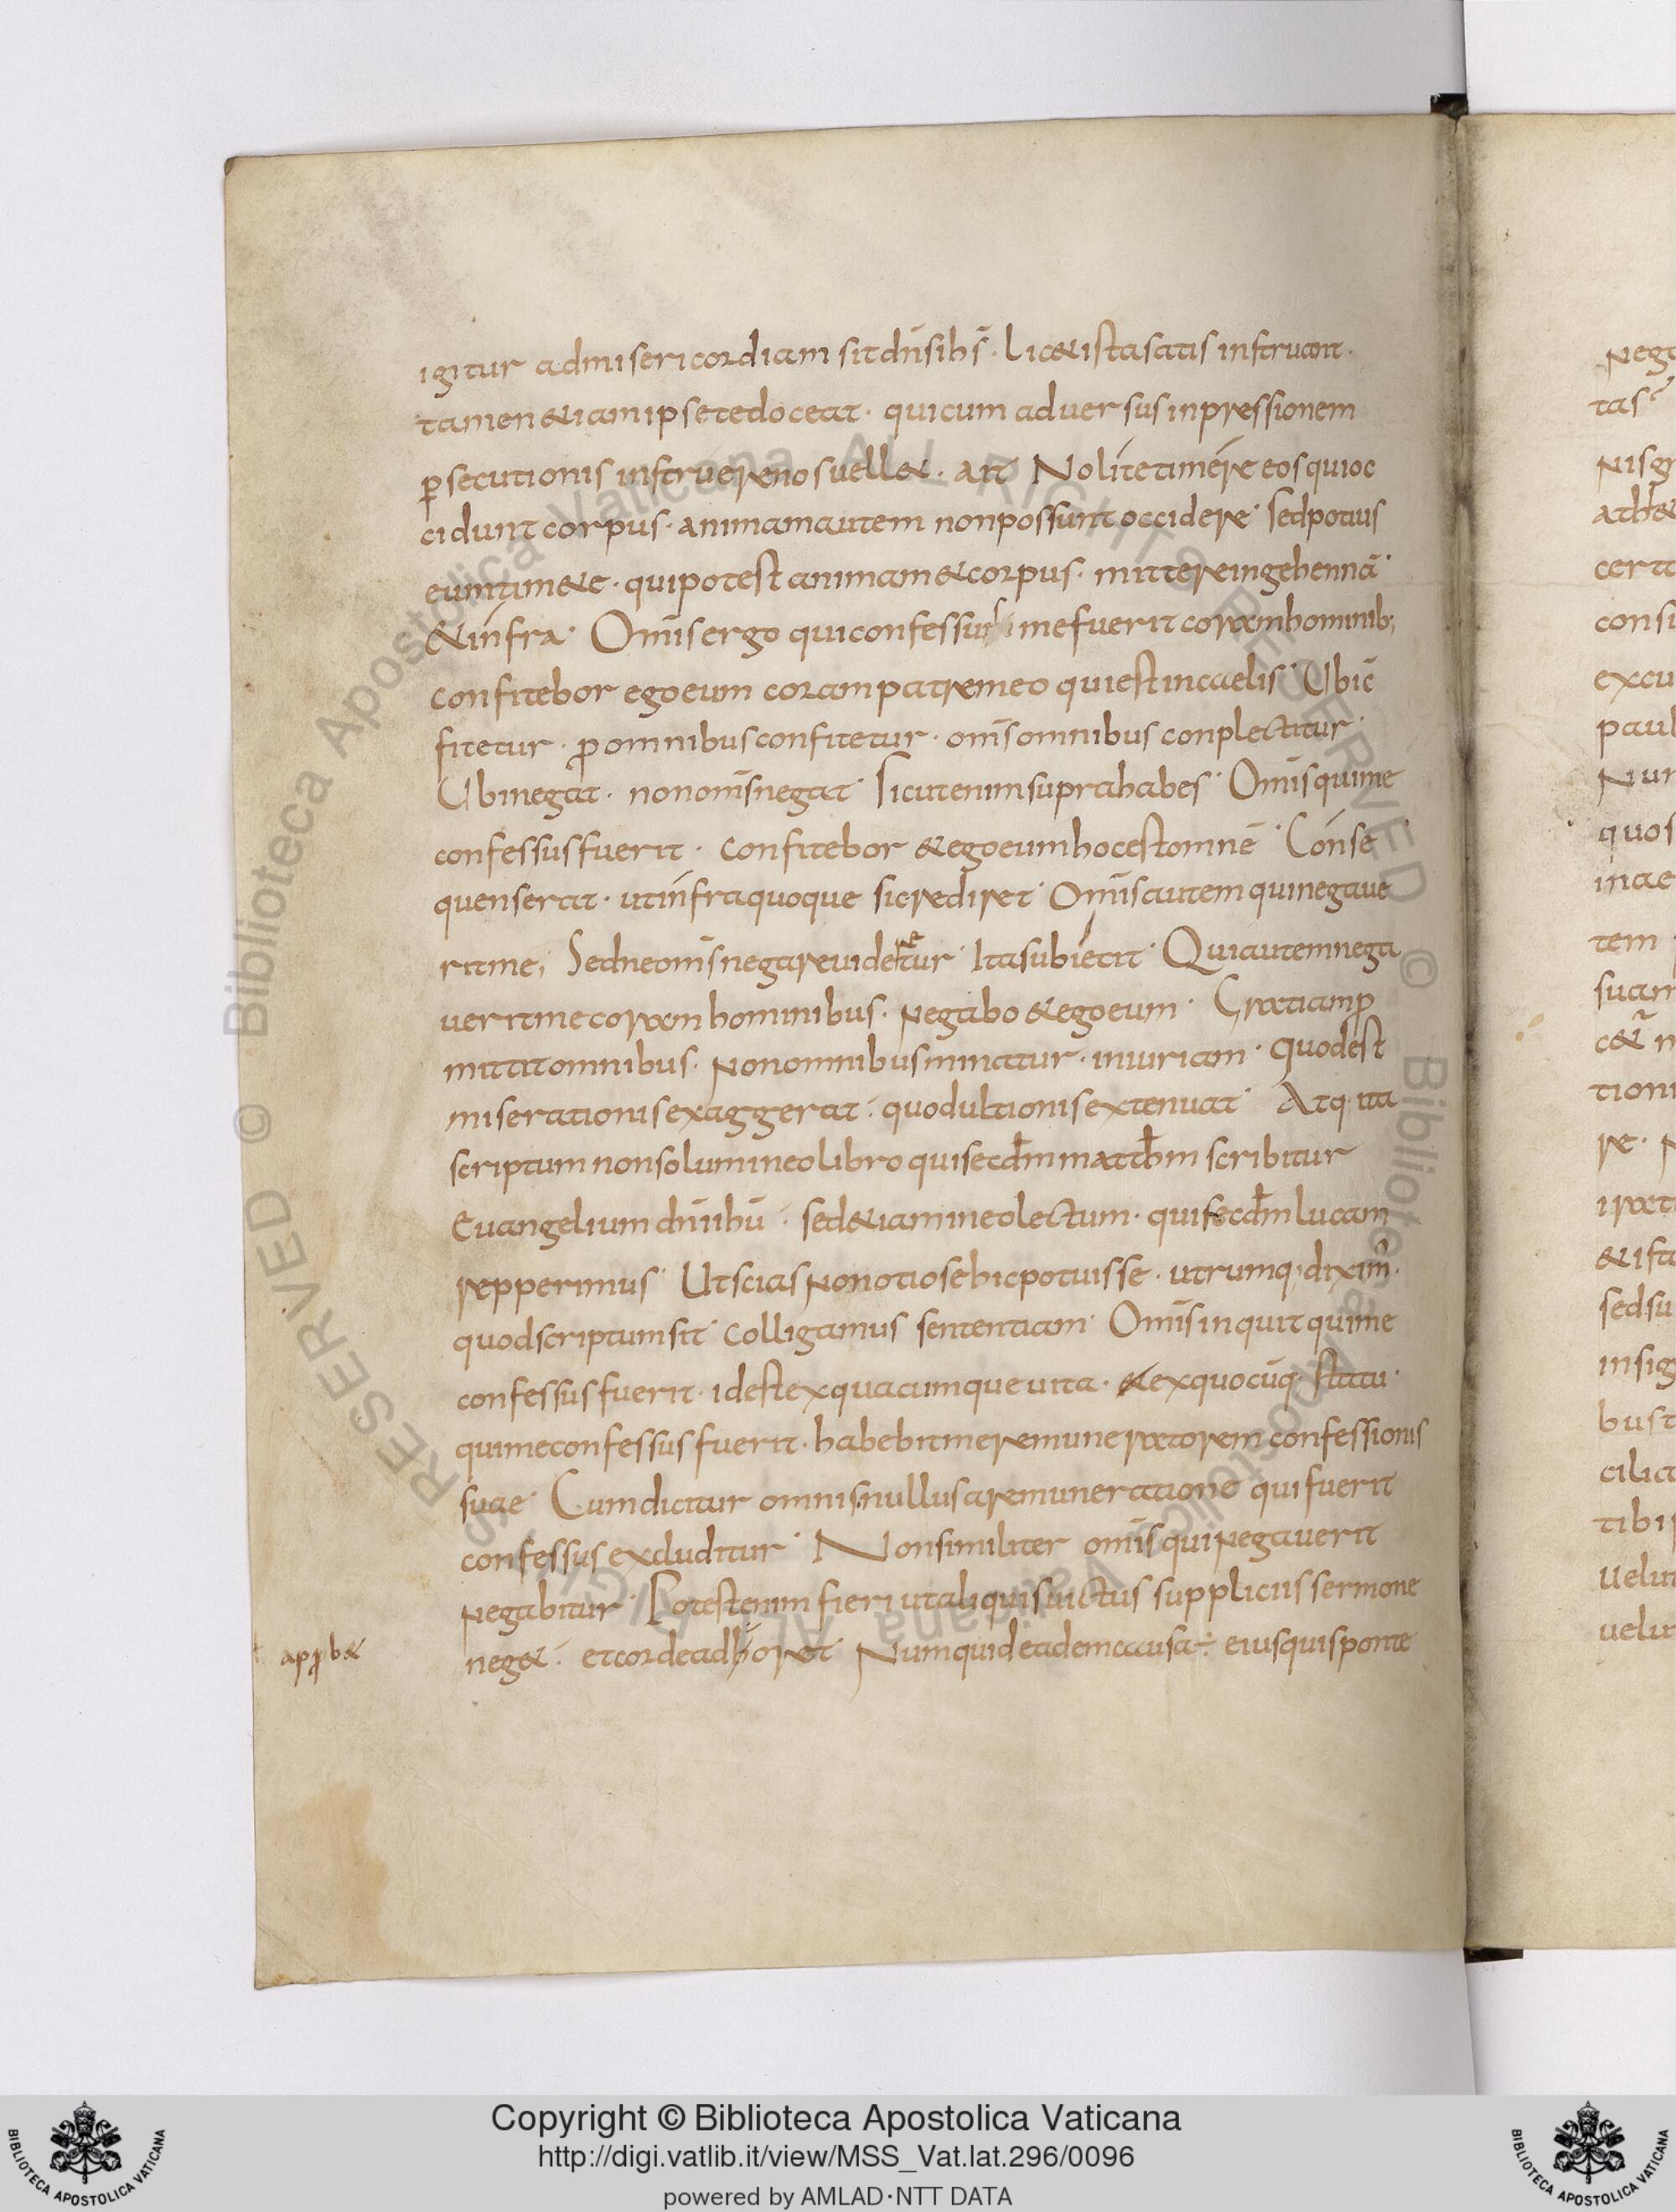 igitur admisericordiam sit dn̄s ih̄s · Licet ista satis instruant ·
tamen etiam ipse te doceat · qui cum adversus inpressionem
p̱secutionis instruere nos vellet · ait Nolite timere eos qui oc
cidunt corpus · animam autem non possunt occidere · sed potius
eum timete · qui potest animam & corpus · mittere in gehennā ·
& infra · Om̄is ergo qui confessus in me fuerit coram hominib;
confitebor ego eum coram patre meo qui est in caelis · Ubi cō
fitetur · ꝓ omnibus confitetur · om̄s omnibus conplectitur ·
Ubi negat · non om̄s negat · Sicut enim supra habes · Om̄is qui me
confessus fuerit · confitebor & ego eum hoc est omnē · Conse
quens erat · ut infra quoque sic rediret · Om̄is autem qui negave
rit me; Sed ne om̄s negare videretur · Ita subiecit · Qui autem nega
verit me coram hominibus · negabo & ego eum · Gratiam ꝓ
mittit omnibus · non omnibus minatur · iniuriam · quod est
miserationis exaggerat · quod ultionis extenuat · Atq· ita
scriptum non solum in eo libro qui secdm matthm scribitur
Evangelium dn̄i ih̄u · sed etiam in eo lectum · qui secdm lucam
repperimus · Ut scias non otiose hic potuisse · utrumq; diximꝰ ·
quod scriptum sit · colligamus sententiam · Om̄is inquit qui me
confessus fuerit · id est ex quacumque vita · & ex quocūq· statu ·
qui me confessus fuerit · habebit me remuneratorem confessionis
suae · Cum dicitur omnis · nullus a remuneratione qui fuerit
confessus excluditur · Non similiter om̄is qui negaverit
negabitur · Potest enim fieri ut aliquis victus suppliciis sermone
neg& · et corde adhoret · Numquid eadem causa ÷ eius qui sponte
apꝓb&
Copyright © Biblioteca Apostolica Vaticana
http://digi.vatlib.it/view/MSS_Vat.lat.296/0096
powered by AMLAD·NTT DATA
BIBLIOTECA APOSTOLICA VATICANA
BIBLIOTECA APOSTOLICA VATICANA